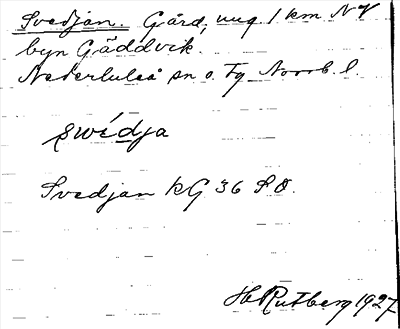 Svedjan. Gård, ung. 1 km NV
byn Gäddvik.
Nederluleå sn o. Tg Norrb. l.
swídja
Svedjan KG 36 SO.
H Rutberg 1927